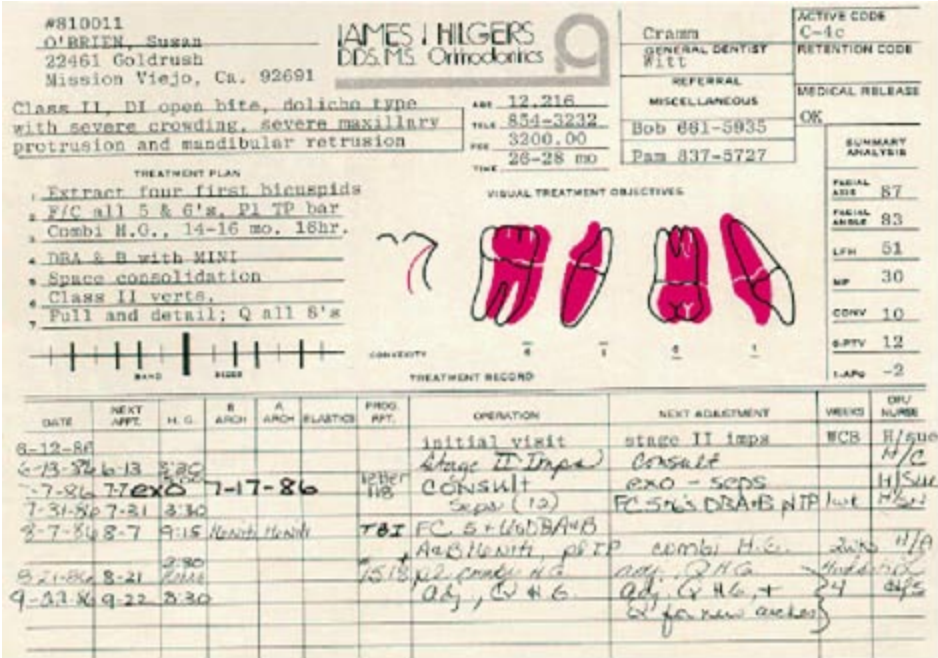 #810011
O'BRIEN, Susan
22461 Goldrush
Mission Viejo, Ca. 92691
JAMES J HILGERS
DDS. M.S. Orthodontics
Cramm
GENERAL DENTIST
Witt
REFERRAL
MISCELLANEOUS
Bob 661-5935
Pam 837-5727
ACTIVE CODE
C-4c
RETENTION CODE
MEDICAL RELEASE
OK
Class II, DI open bite, dolicho type
with severe crowding, severe maxillary
protrusion and mandibular retrusion
AGE 12,216
TELE 854-3232
FEE 3200.00
TIME 26-28 mo
TREATMENT PLAN
1 Extract four first bicuspids
2 F/C all 5 & 6's, Pl TP bar
3 Combi H.G., 14-16 mo. 16hr.
4 DBA & B with MINI
5 Space consolidation
6 Class II verts.
7 Full and detail; Q all 8's
BAND
VISUAL TREATMENT OBJECTIVES
CONVEXITY 6 1 6 1
SUMMARY ANALYSIS
FACIAL AXIS 87
FACIAL ANGLE 83
LFH 51
MP 30
CONV 10
6-PTV 12
1-APO -2
TREATMENT RECORD
DATE NEXT APPT. H. G. B ARCH A ARCH ELASTICS PROG. RPT. OPERATION NEXT ADJUSTMENT WEEKS DR/ NURSE
6-12-86 initial visit stage II imps WCB H/sue
6-13-86 6-13 3:30 Stage II Imps consult H/C
7-7-86 7-7 exo 7-17-86 letter CONSULT exo - seps H/Sue
7-31-86 7-31 3:30 Seps (12) FC 5+6's DBA+B pl TP 1wk
8-7-86 8-7 9:15 TBI FC 5+6's DBA+B
A+B pl TP combi H.G. 2wks H/A
8-21-86 8-21 2:30 pl combi HG adj. Q HG
9-22-86 9-22 3:30 adj., Q HG adj. Q HG, + 4
Q for new arches